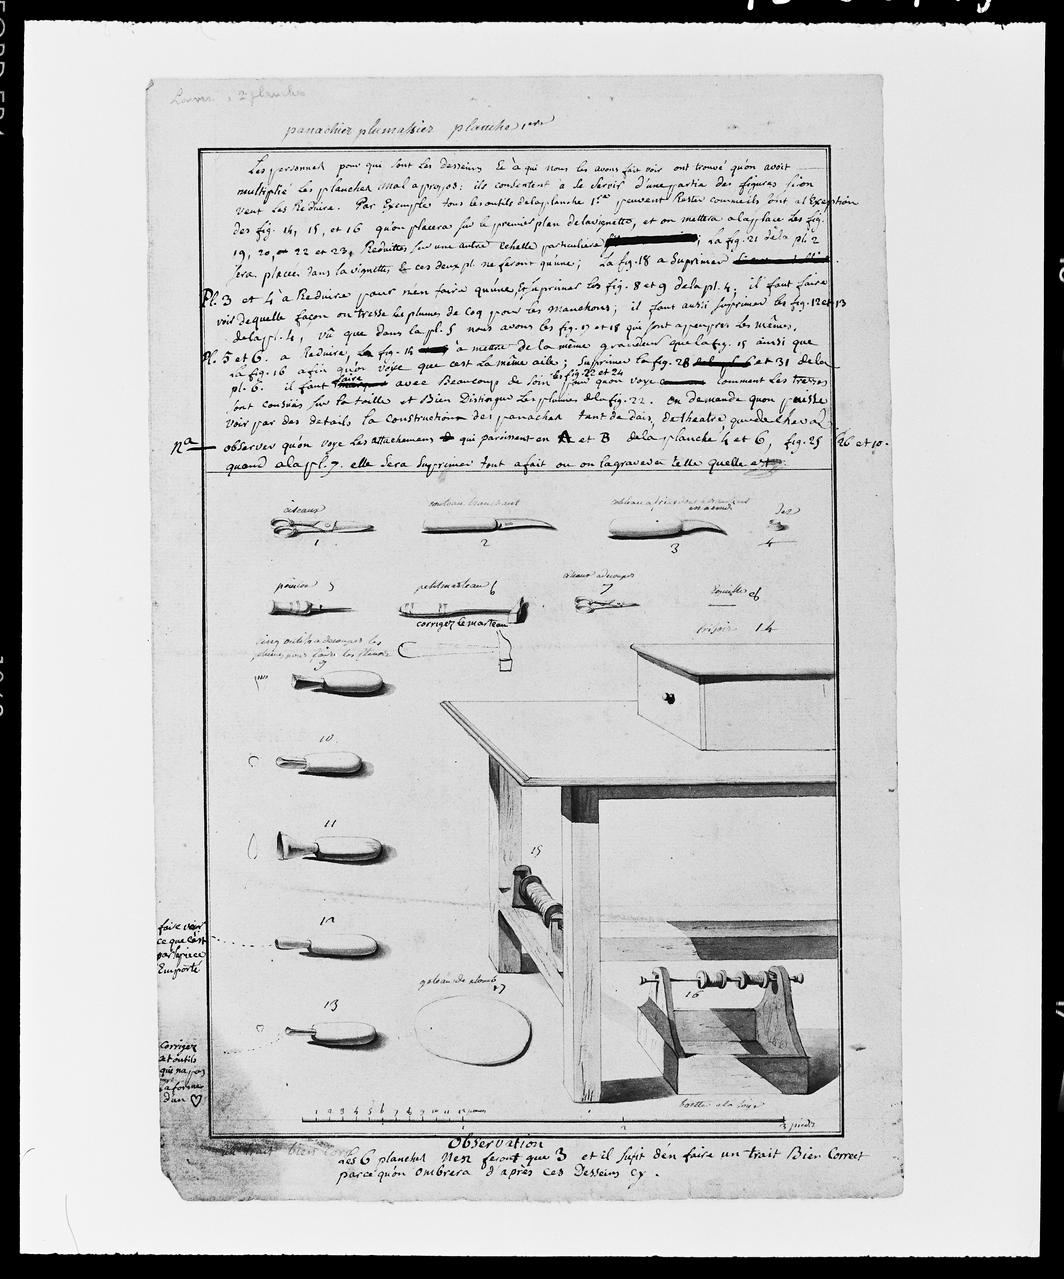 2 planches
panachier plumassier planche 1ere
Les personnes pour qui sont Les desseins Et à qui nous les avons fait voir ont trouvé qu'on avoit
multiplié Les planches mal apropos; ils consentent à se servir d'une partie des figures si on
veut Les Reduire. Par Exemple tous les outils dela planche 1ere peuvent Rester comme ils sont al'Exeption
des fig. 14, 15, et 16 qu'on placera sur le premier plan de la vignette, et on mettera ala place Les fig.
19, 20, 22 et 23, Reduittes sur une autre echelle particuliere; La fig. 21 dela pl. 2
sera placée dans la vignette & ces deux pl. ne feront qu'une; La fig. 18 a suprimer
Pl. 3 et 4 à Reduire pour n'en faire qu'une, & suprimer les fig. 8 et 9 dela pl. 4; il faut faire
voir de quelle façon on tresse les plumes de coq pour les manchons; il faut aussi suprimer les fig. 12 et 13
dela pl. 4, vû que dans la pl. 5 nous avons les fig. 17 et 18 qui sont apeuprès Les mêmes.
Pl. 5 et 6. a Reduire, La fig. 14 à mettre de la même grandeur que la fig. 15 ainsi que
La fig. 16 afin qu'on voye que c'est La même aile; suprimer la fig. 28 et 31 dela
pl. 6. il faut faire avec Beaucoup de soin les fig. 22 et 24 pour qu'on voye comment Les tresses
sont cousües sur la taille et Bien Distinguer Les plumes dela fig. 22. on demande qu'on puisse
voir par des details la construction des panaches tant de dais, de theatre, que de cheval
Na observer qu'on voye Les attachemens qui paroissent en A et B dela planche 4 et 6, fig. 25 26 et 10.
quand a la pl. 7. elle sera suprimer tout a fait ou on la gravera telle quelle est.
ciseaux
1
couteau tranchant
2
couteau a friser
3
Dez
4
poinçon 5
petit marteau 6
ciseaux a decouper
7
8
corrigez le marteau
frisoir 14
cinq outils a decouper les
plumes pour faire les fleurs
9
10
11
12
13
15
16
gateau de plomb
17
faire voir
ce que c'est
par la piece
Emporté
Corriger
cet outils
qui n'a pas
la forme
d'un ♡
boette a la soye
1 2 3 4 5 6 7 8 9 10 11 12 pouces
1 2 3 pieds
Observation
Les 6 planches N'en feront que 3 et il sufit d'en faire un trait Bien Correct
parce qu'on ombrera d'après ces Desseins cy.